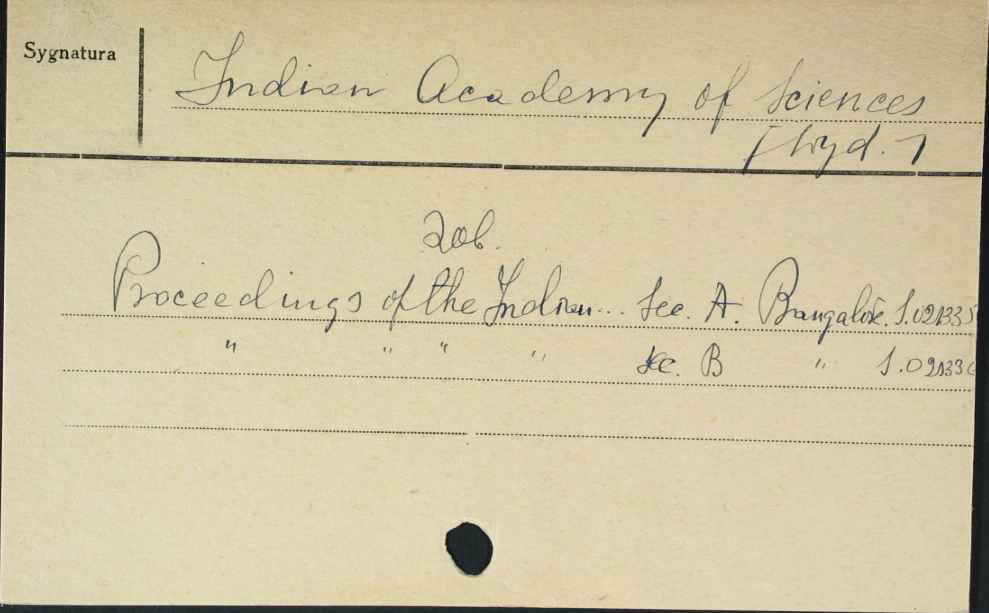 Sygnatura
Indian Academy of Sciences
[wyd.]
zob.
Proceedings of the Indian... Sec. A. Bangalore. S.021335
" " " " Sec. B " S.02133